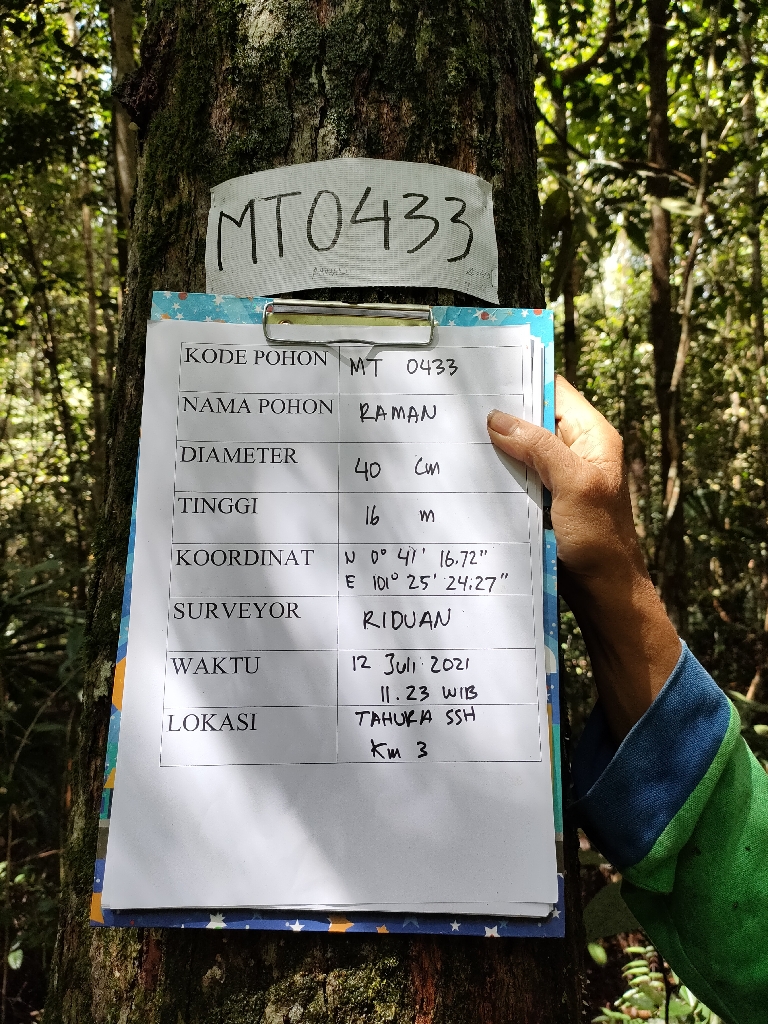 MT0433
KODE POHON MT 0433
NAMA POHON RAMAN
DIAMETER 40 Cm
TINGGI 16 m
KOORDINAT N 0° 41' 16.72"
E 101° 25' 24.27"
SURVEYOR RIDUAN
WAKTU 12 Juli 2021
11.23 WIB
LOKASI TAHURA SSH
Km 3